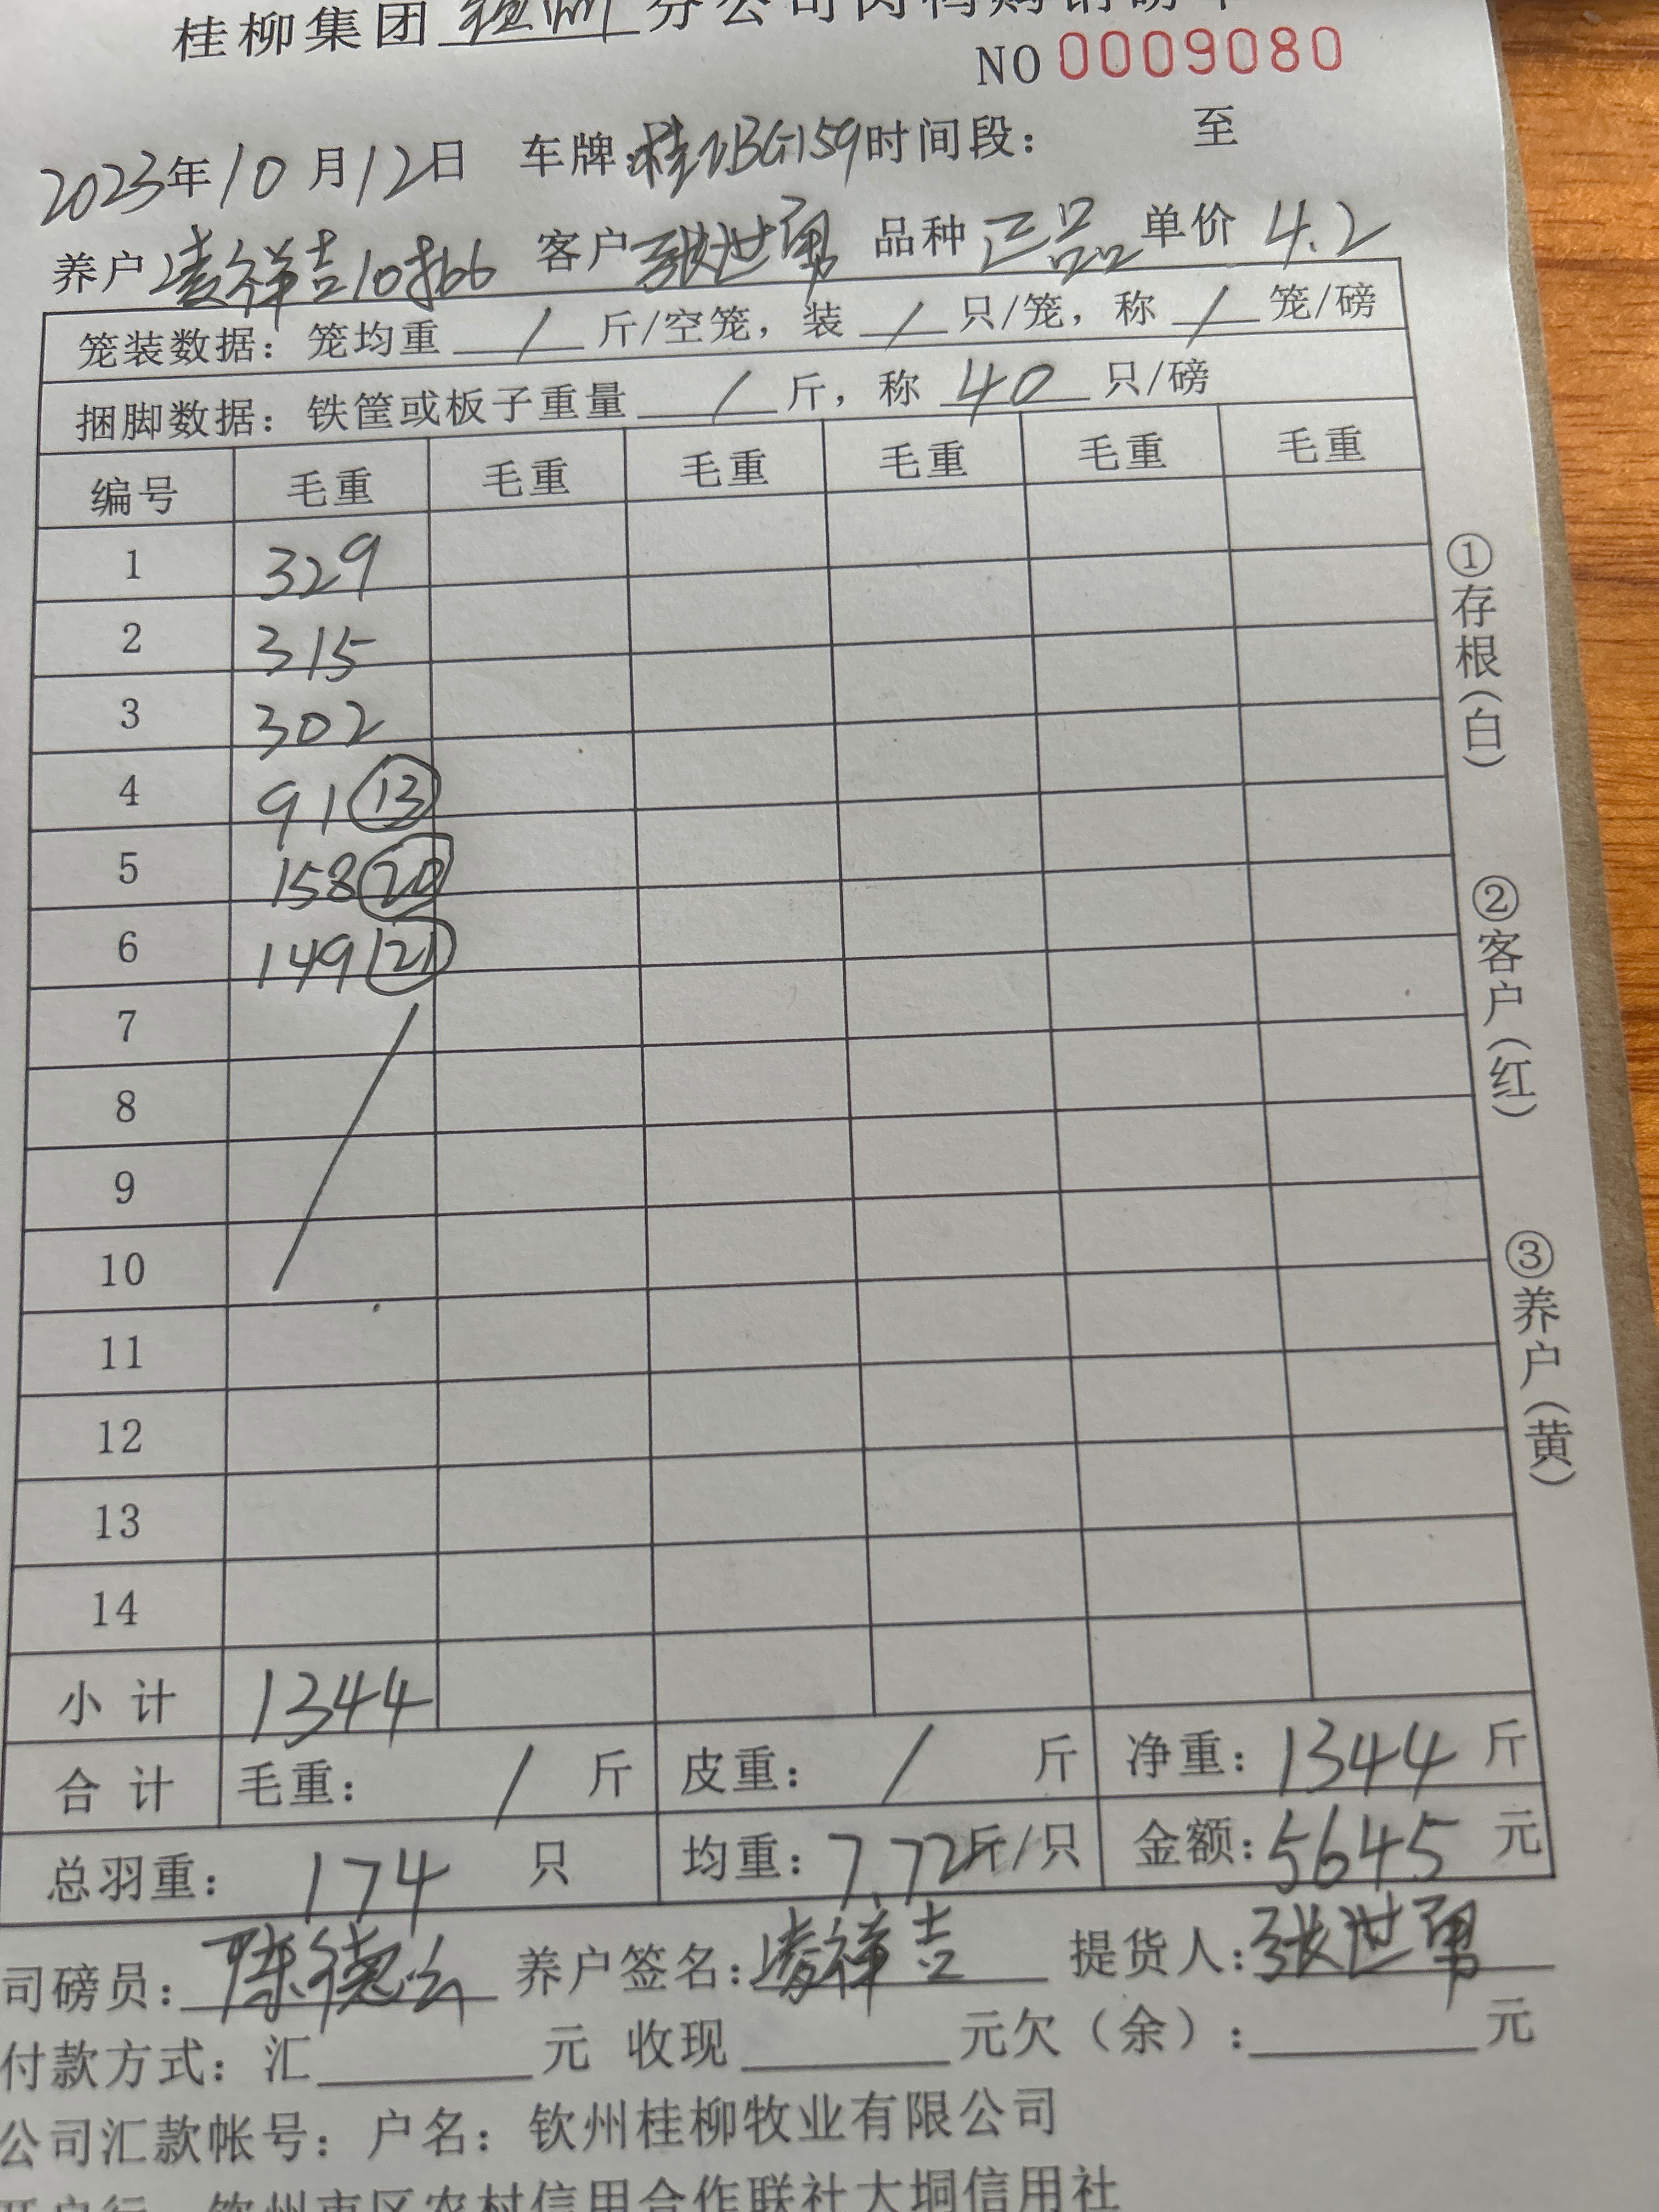 桂柳集团 钦州 分公司肉鸭购销磅单
NO 0009080
2023年10月12日 车牌: 时间段: 至
养户 凌祥吉10批6 客户 张世勇 品种 正品 单价 4.2
笼装数据: 笼均重 / 斤/空笼, 装 / 只/笼, 称 / 笼/磅
捆脚数据: 铁筐或板子重量 / 斤, 称 40 只/磅
编号 毛重 毛重 毛重 毛重 毛重 毛重
1 329
2 315
3 302
4 91 13
5 158 20
6 149 21
7
8
9
10
11
12
13
14
小计 1344
合计 毛重: / 斤 皮重: / 斤 净重: 1344 斤
总羽重: 174 只 均重: 7.72斤/只 金额: 5645 元
司磅员: 陈德 养户签名: 凌祥吉 提货人: 张世勇
付款方式: 汇 元 收现 元欠(余): 元
公司汇款帐号: 户名: 钦州桂柳牧业有限公司
开户行 钦州市区农村信用合作联社大垌信用社
①存根(白)
②客户(红)
③养户(黄)